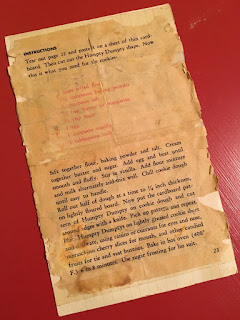 INSTRUCTIONS
Tear out page 22 and paste it on a sheet of thin card-
board. Then cut out the Humpty Dumpty shape. Now
this is what you need for the cookies:
2 cups sifted flour
baking powder
salt
cup butter or margarine
cup sugar
1 egg
1 teaspoon vanilla
1 tablespoon milk
Sift together flour, baking powder and salt. Cream
together butter and sugar. Add egg and beat until
smooth and fluffy. Stir in vanilla. Add flour mixture
and milk alternately and mix well. Chill cookie dough
until easy to handle.
Roll out half of dough at a time to ¼ inch thickness,
on lightly floured board. Now put the cardboard pat-
tern of Humpty Dumpty on cookie dough and cut
around edges with a knife. Pick up pattern and repeat.
Put Humpty Dumptys on lightly greased cookie sheet
and decorate, using raisins or currants for eyes and nose,
maraschino cherry slices for mouth, and other candied
fruits for tie and vest buttons. Bake in hot oven (400°
F.) 6 to 8 minutes. Use sugar frosting for his suit.
23